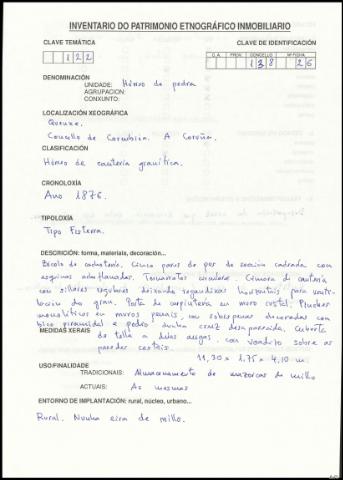 INVENTARIO DO PATRIMONIO ETNOGRÁFICO INMOBILIARIO
CLAVE TEMÁTICA
CLAVE DE IDENTIFICACIÓN
1 2 2
C.A. PROV. CONCELLO Nº FICHA
1 3 8 2 6
DENOMINACIÓN
UNIDADE: Hórreo de pedra
AGRUPACION:
CONXUNTO:
LOCALIZACIÓN XEOGRÁFICA
Concello de Corcubión. A Coruña.
CLASIFICACIÓN
Hórreo de cantería granítica.
CRONOLOXÍA
Ano 1876.
TIPOLOXÍA
Tipo Fisterra.
DESCRICIÓN: forma, materiais, decoración...
de cachotería. Cinco pares de pes de sección cadrada con
esquinas achaflanadas. Tornarratos circulares. Cámara de cantería
con sillares regulares deixando regandixas horizontais para venti-
lación do gran. Porta de carpintería en muro costal. Pinches
monolíticos en muros penais, con sobrepenas decoradas con
bico piramidal e pedro dunha cruz desparecida. Cuberta
MEDIDAS XERAIS
de tella a dúas augas, con voandizo sobre as
paredes costais.
11,30 x 1,75 x 4,10 m.
USO/FINALIDADE
TRADICIONAIS: Almacenamento de mazorcas de millo
ACTUAIS: As mesmas
ENTORNO DE IMPLANTACIÓN: rural, núcleo, urbano...
Rural. Nunha eira de millo.